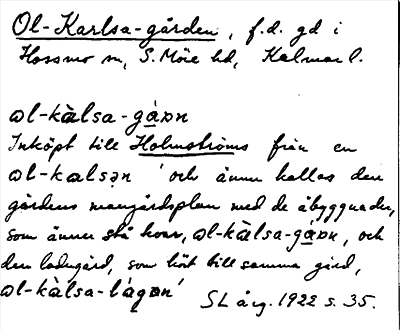 Ol-Karlsa-gården, f.d. gd i
Hossmo sn, S. Möre hd, Kalmar l.
ɷl-kàlsa-gạ́ɷn
Inköpt till Holmströms från en
ɷl-kalsən ' och ännu kallas den
gårdens mangårdsplan med de åbyggnader,
som ännu stå kvar, ɷl-kàlsa-gạ́ɷn, och
den ladugård, som hört till samma gård,
ɷl-kàlsa-lágɷn'
SL årg. 1922 s. 35.